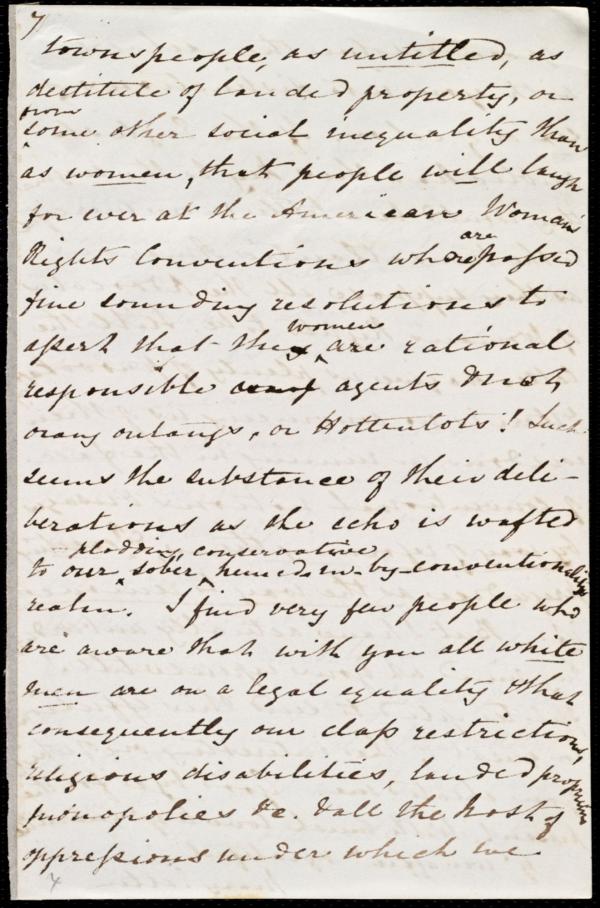 7
townspeople, as untitled, as
destitute of landed property, or
from
some other social inequality than
as women, that people will laugh
for ever at the American Woman's
Rights Conventions where are passed
fine sounding resolutions to
assert that they women are rational
responsible agents & not
orang outangs, or Hottentots! Such
seems the substance of their deli-
berations as the echo is wafted
plodding, conservative
to our sober hemed-in-by-conventionality
realm. I find very few people who
are aware that with you all white
men are on a legal equality & that
consequently our class restrictions,
religious disabilities, landed propertied
monopolies &c. & all the host of
oppressions under which we